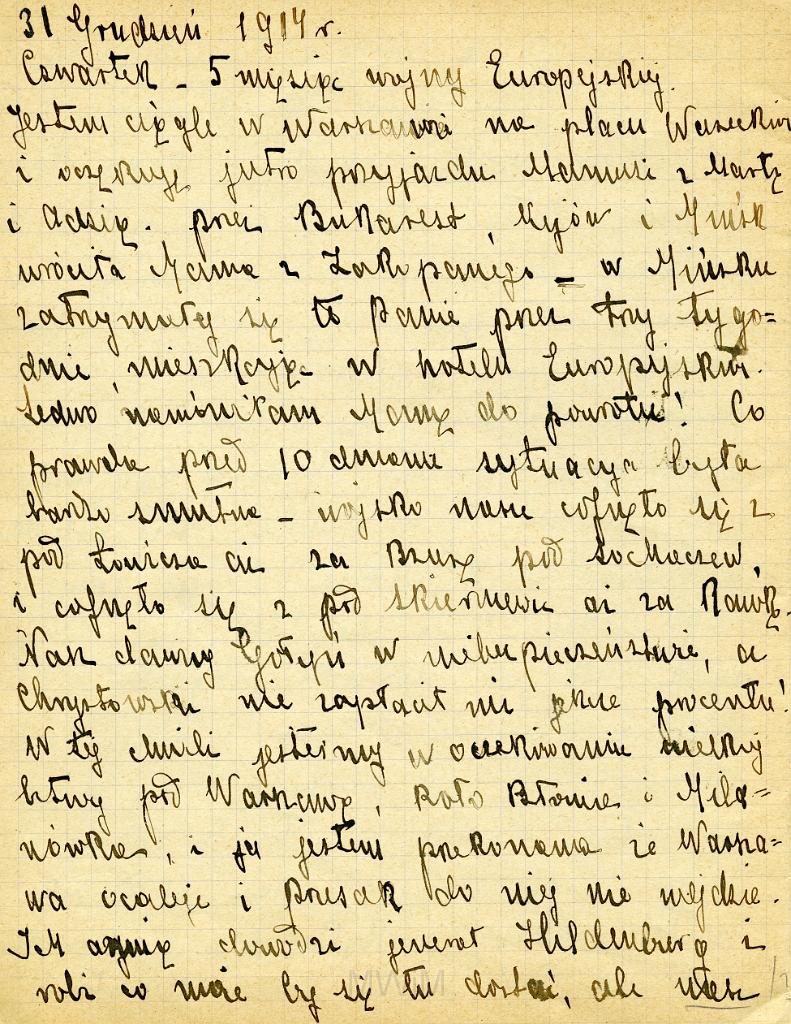 31 Grudzień 1914 r.
Czwartek – 5 miesiąc wojny Europejskiej.
Jestem ciągle w Warszawie na placu Wareckim
i oczekuję jutro przyjazdu Mamusi z Martą
i Adzią. przez Bukarest, Kijów i Mińsk
wróciła Mama z Zakopanego – w Mińsku
zatrzymały się te Panie przez trzy tygo=
dnie, mieszkając w hotelu Europejskim.
Ledwo namówiłam Mamę do powrotu! Co
prawda przed 10 dniami sytuacya była
bardzo smutna – wojsko nasze cofnęło się z
pod Łowicza aż za Bzurę pod Sochaczew,
i cofnęło się z pod Skierniewic aż za Rawkę.
Nasz dawny Gołyń w niebezpieczeństwie, a
Chrystowski nie zapłacił mi jeszcze procentu!
W tej chwili jesteśmy w oczekiwaniu wielkiej
bitwy pod Warszawą, koło Błonia i Mila=
nówka, i ja jestem przekonana że Warsza=
wa ocaleje i Prusak do niej nie wejdzie.
Ich armią dowodzi jenerał Hildenberg i
robi co może by się tu dostać, ale wiesz
MWM